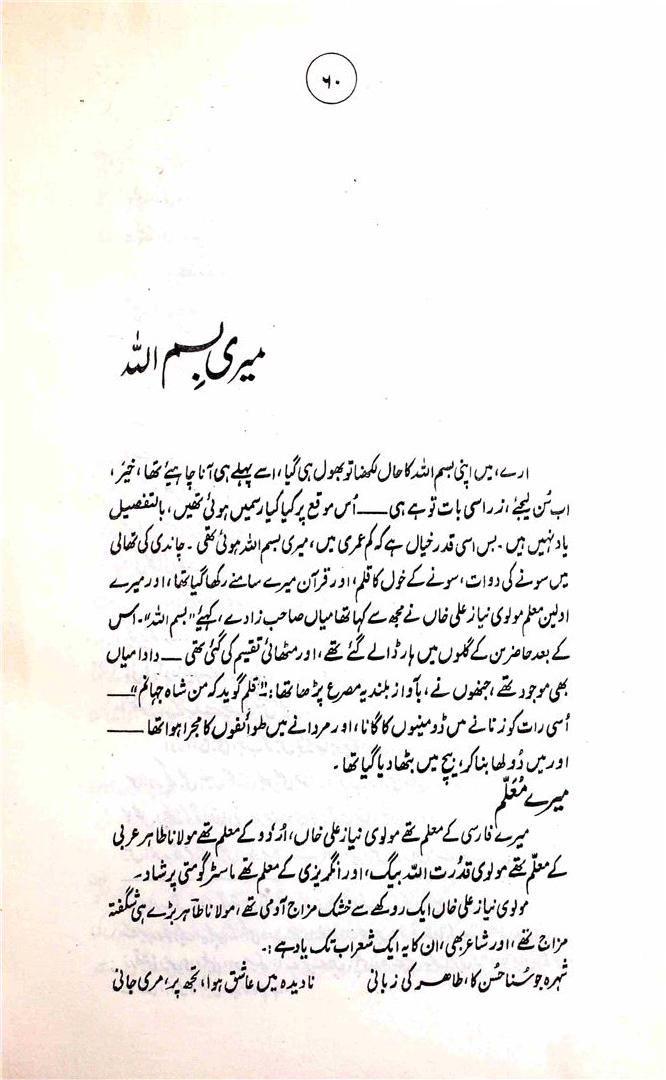 ۶۰
میری بسم اللہ
ارے، میں اپنی بسم اللہ کا حال لکھنا تو بھول ہی گیا، اسے پہلے ہی آنا چاہیئے تھا، خیر،
اب سُن لیجئے، ذرا سی بات تو ہے ہی ـــــ اُس موقع پر کیا کیا رسمیں ہوئی تھیں، بالتفصیل
یاد نہیں ہیں۔ بس اسی قدر خیال ہے کہ کم عمری میں، میری بسم اللہ ہوئی تھی۔ چاندی کی تھالی
میں سونے کی دوات، سونے کے خول کا قلم، اور قرآن میرے سامنے رکھا گیا تھا، اور میرے
اولین معلم مولوی نیاز علی خاں نے مجھ سے کہا تھا میاں صاحب زادے، کہیئے "بسم اللہ"۔ اس
کے بعد حاضرین کے گلوں میں ہار ڈالے گئے تھے، اور مٹھائی تقسیم کی گئی تھی ـــــ دادا میاں
بھی موجود تھے، جنھوں نے، بآواز بلند یہ مصرع پڑھا تھا: "قلم گوید کہ من شاہ جہانم" ـــــ
اُسی رات کو زنانے میں ڈومینوں کا گانا، اور مردانے میں طوائفوں کا مجرا ہوا تھا ـــــ
اور میں دُولھا بنا کر، بیچ میں بٹھا دیا گیا تھا۔
میرے مُعَلّم
میرے فارسی کے معلم تھے مولوی نیاز علی خاں، اُردو کے معلم تھے مولانا طاہر عربی
کے معلّم تھے مولوی قدرت اللہ بیگ، اور انگریزی کے معلم تھے ماسٹر گومتی پرشاد۔
مولوی نیاز علی خاں ایک روکھے سے خشک مزاج آدمی تھے، مولانا طاہر بڑے ہی شگفتہ
مزاج تھے، اور شاعر بھی، ان کا یہ ایک شعر اب تک یاد ہے:۔
شہرہ جو سُنا حُسن کا، طاہر کی زبانی نادیدہ میں عاشق ہوا، تجھ پر، مری جانی